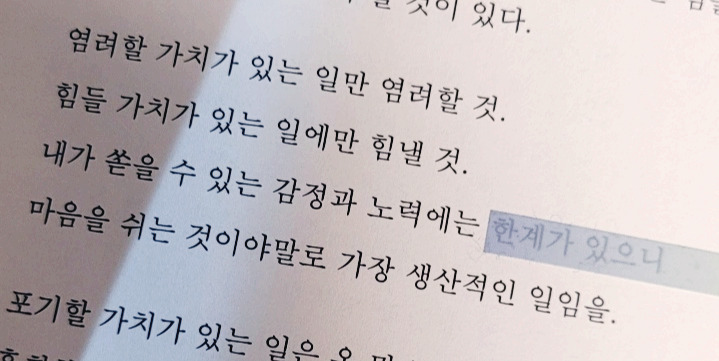 것이 있다.
염려할 가치가 있는 일만 염려할 것.
힘들 가치가 있는 일에만 힘낼 것.
내가 쏟을 수 있는 감정과 노력에는 한계가 있으니
마음을 쉬는 것이야말로 가장 생산적인 일임을.
포기할 가치가 있는 일은